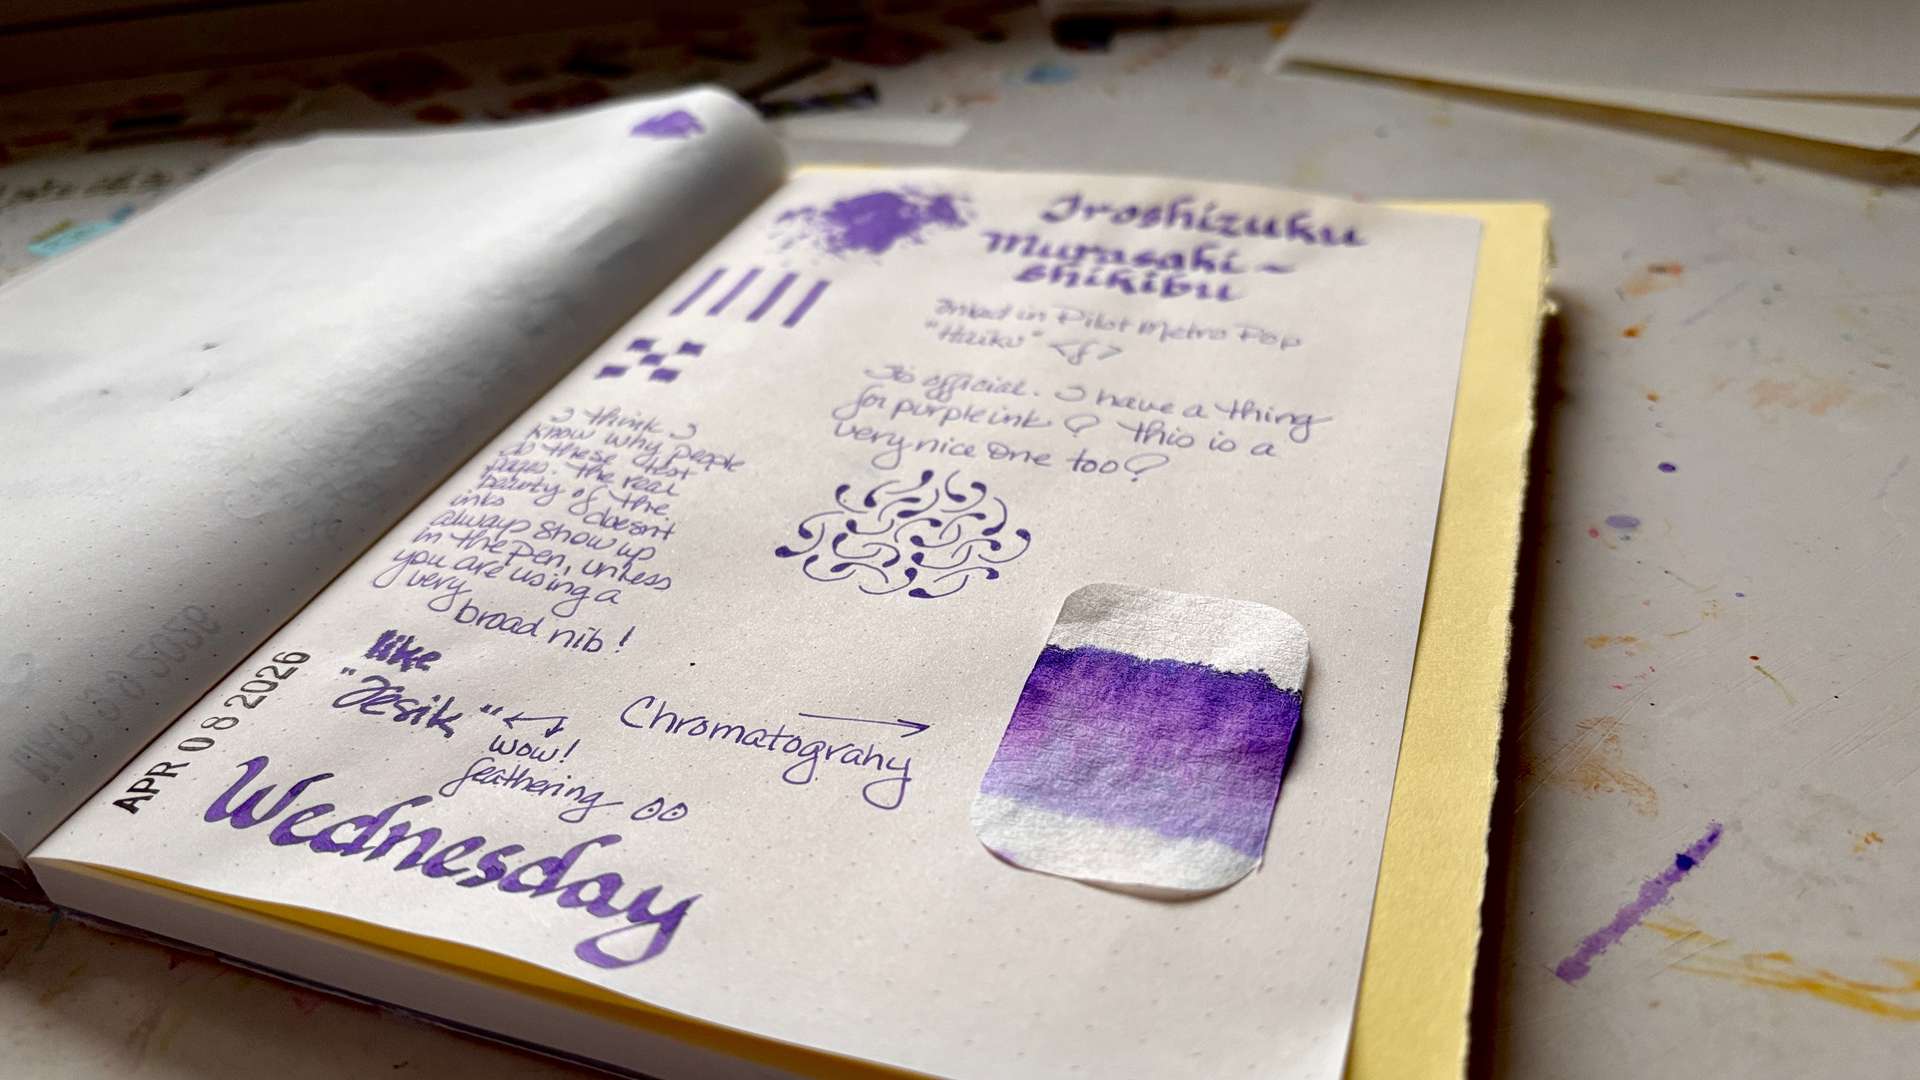 Iroshizuku
Murasaki-
shikibu
Inked in Pilot Metro Pop
"Haiku" <f>
It's official. I have a thing
for purple ink. This is a
very nice one too
I think I
know why people
do these test
pages. The real
beauty of the
inks doesn't
always show up
in the pen, unless
you are using a
very
broad nib!
like
"Jesik"
wow!
feathering
Chromatograhy
APR 08 2026
Wednesday